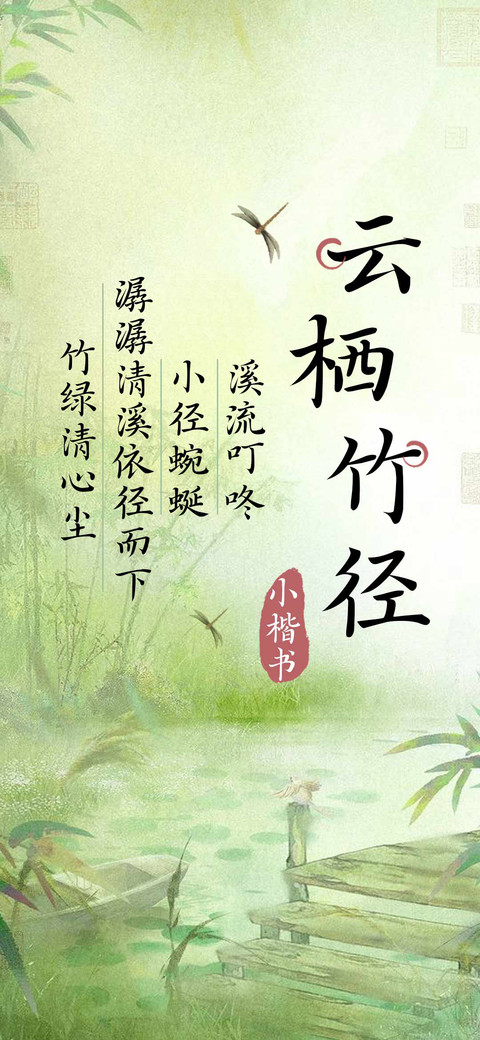 云栖竹径
小楷书
溪流叮咚
小径蜿蜒
潺潺清溪依径而下
竹绿清心尘